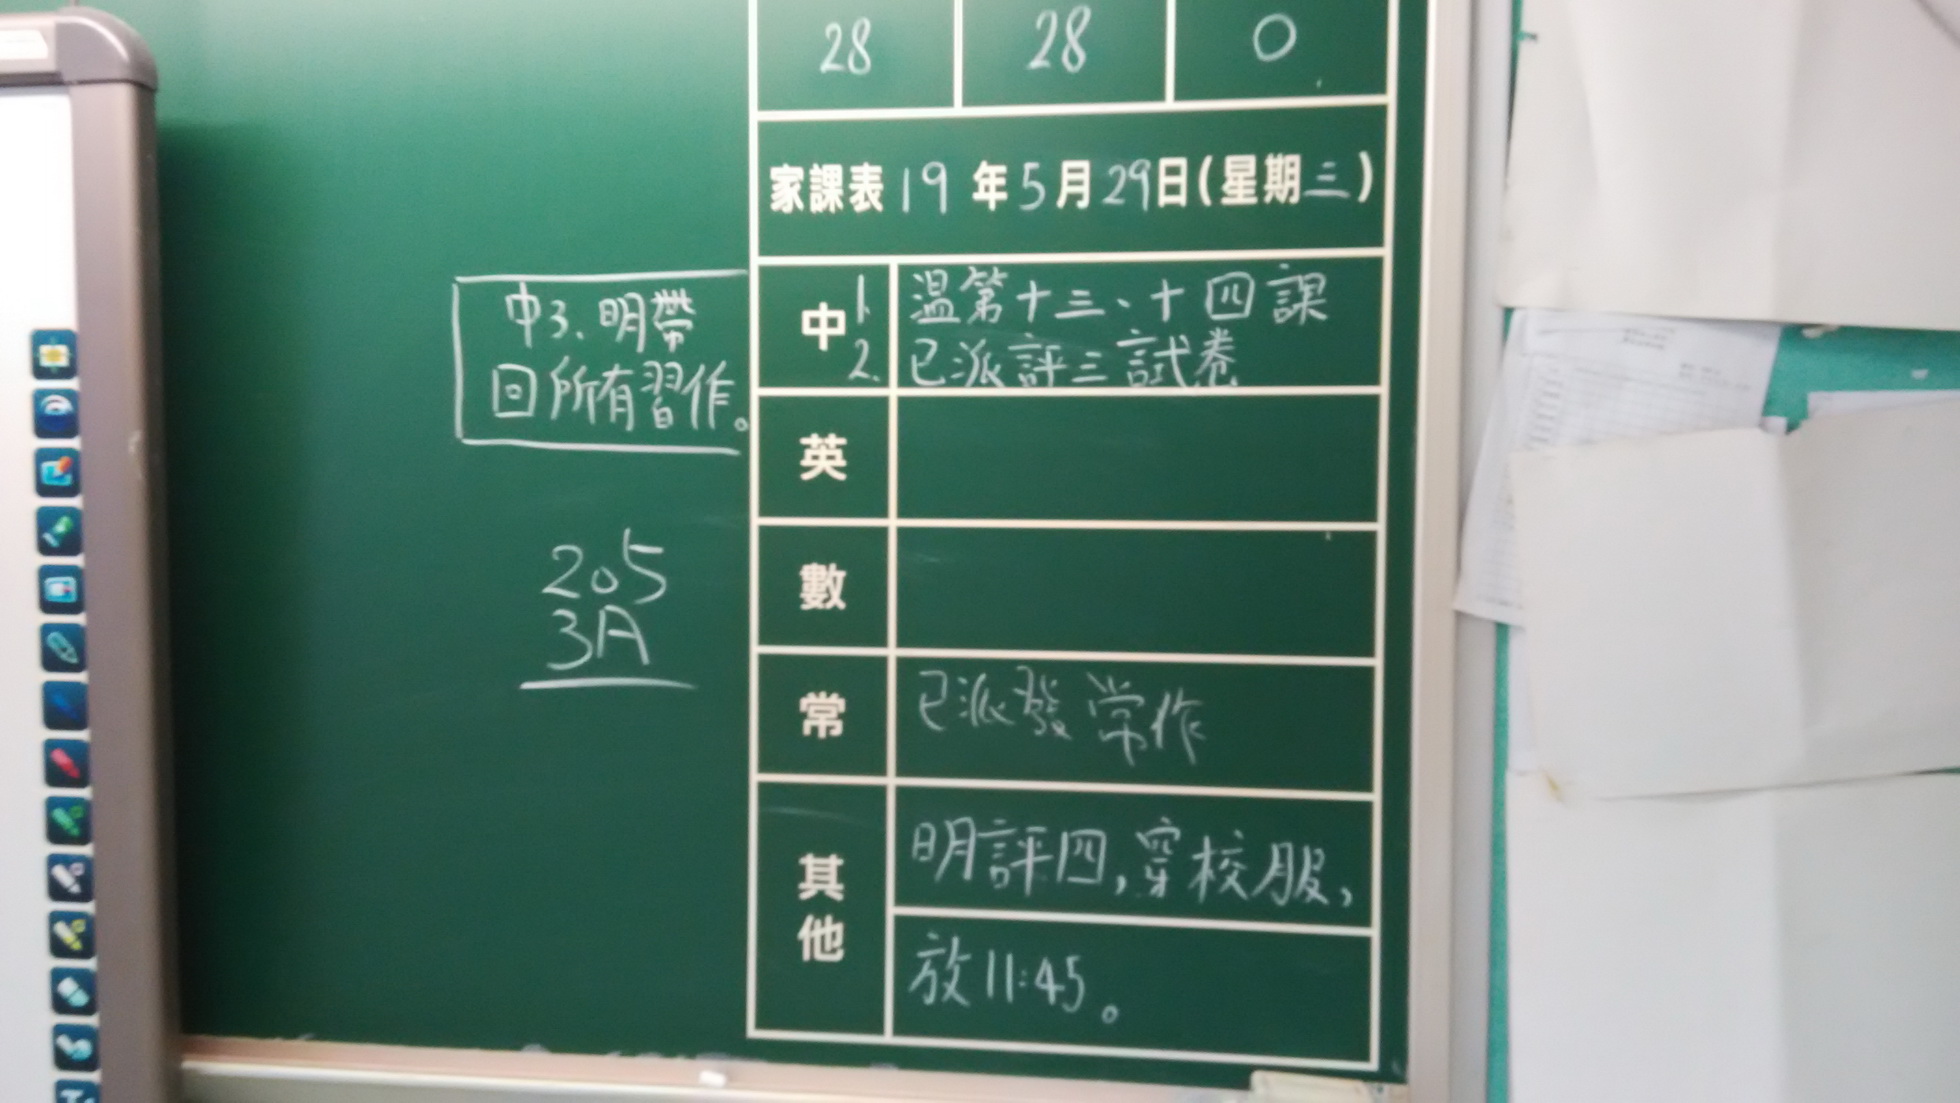 28 28 0
家課表 19 年 5 月 29 日 (星期三)
中 1. 温第十三、十四課
2. 已派評三試卷
中3. 明帶
回所有習作。
英
數
205
3A
常 已派發常作
其他 明評四,穿校服,
放11:45。